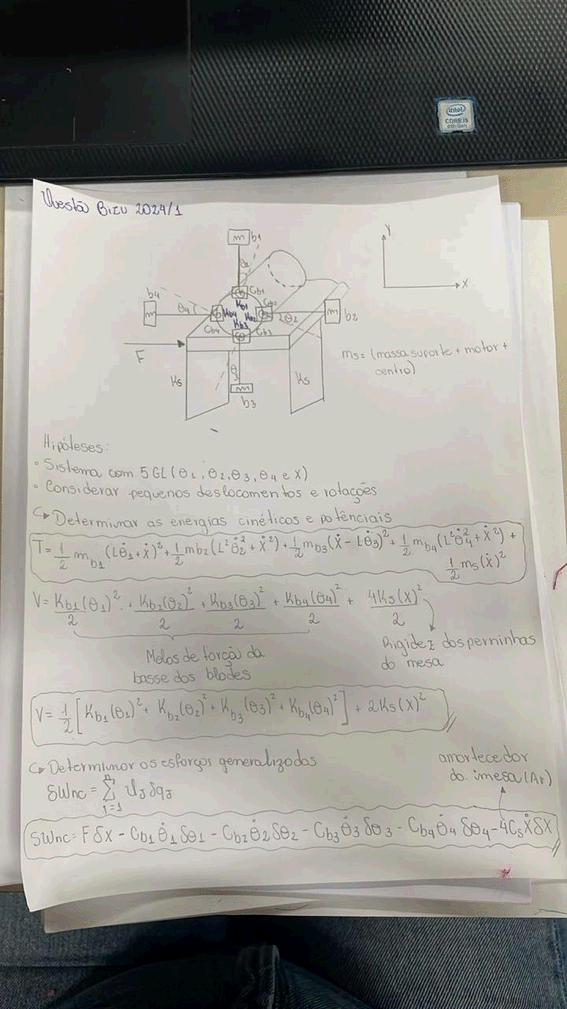 intel
CORE i5
8th Gen
Questão Bizu 2024/1
m b1
θ1
Cb1
Kb1
b4
m
θ4
Cb4
Kb4
Kb2
θ2
m
b2
Kb3
Cb3
θ3
m
b3
F
Ks
Ks
Y
X
ms = (massa suporte + motor +
centro)
Hipóteses:
• Sistema com 5 GL (θ1, θ2, θ3, θ4 e X)
• Considerar pequenos deslocamentos e rotações
↳ Determinar as energias cinéticas e potênciais
T = 1/2 mb1 (Lθ̇1 + ẋ)² + 1/2 mb2 (L²θ̇2² + ẋ²) + 1/2 mb3 (ẋ - Lθ̇3)² + 1/2 mb4 (L²θ̇4² + ẋ²) +
1/2 ms (ẋ)²
V = Kb1(θ1)²/2 + Kb2(θ2)²/2 + Kb3(θ3)²/2 + Kb4(θ4)²/2 + 4Ks(X)²/2
Molas de torção da
basse dos blades
Rigidez das perninhas
da mesa
V = 1/2 [Kb1(θ1)² + Kb2(θ2)² + Kb3(θ3)² + Kb4(θ4)²] + 2Ks(X)²
↳ Determinar os esforços generalizados
amortecedor
da mesa (Ar)
δWnc = Σ
δqj
δWnc = FδX - Cb1 θ̇1 δθ1 - Cb2 θ̇2 δθ2 - Cb3 θ̇3 δθ3 - Cb4 θ̇4 δθ4 - 4Cs Ẋ δX